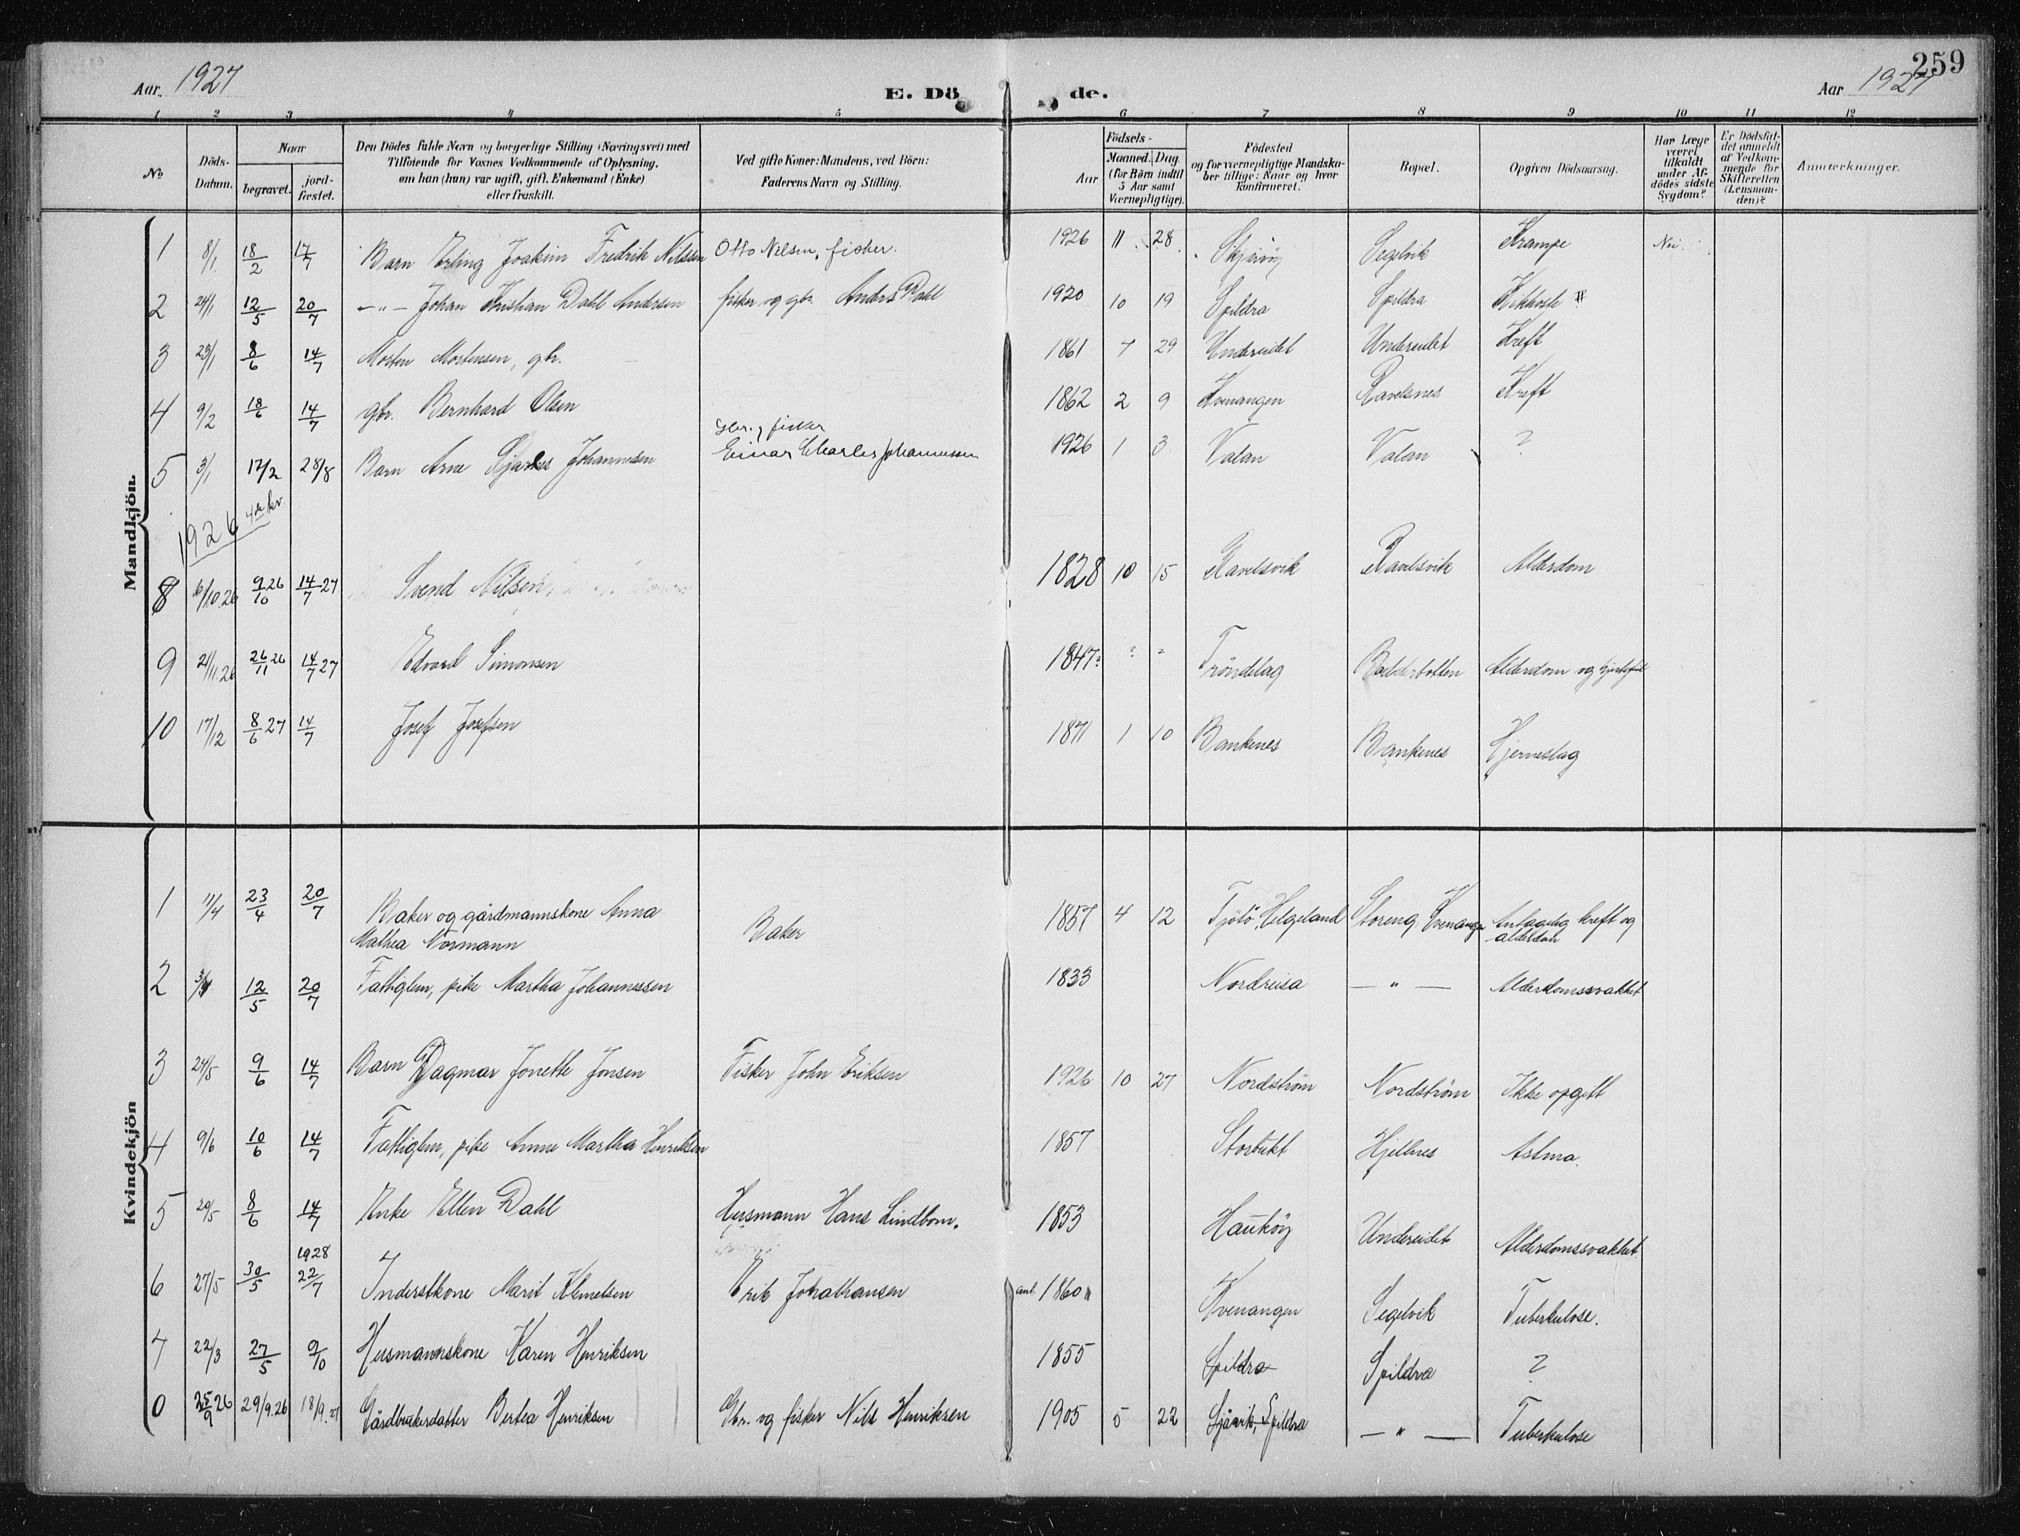 259
Aar. 1927
E. Dö de.
Aar 1927
1 2 3 4 5 6 7 8 9 10 11 12
No
Döds-Datum.
Naar
begravet.
jord-fæstet.
Den Dödes fulde Navn og borgerlige Stilling (Næringsvei) med
Tilföiende for Voxnes Vedkommende af Oplysning,
om han (hun) var ugift, gift, Enkemand (Enke)
eller fraskilt.
Ved gifte Koner: Mandens, ved Börn:
Faderens Navn og Stilling.
Födsels-
Aar
Maaned. Dag.
(for Börn indtil
5 Aar samt
Værnepligtige).
Födested
og for værnepligtige Mandska-
ber tillige: Naar og hvor
konfirmeret.
Bopæl.
Opgiven Dödsaarsag.
Har Læge
været
tilkaldt
under Af-
dödes sidste
Sygdom?
Er Dödsfal-
det anmeldt
af Vedkom-
mende for
Skifteretten
(Lensman-
den)?
Anmærkninger.
Mandkjön.
1 8/1 18/2 17/7 Barn Erling Joakim Fredrik Nilsen Otto Nilsen, fisker. 1926 11 28 Skjærvöy Segelvik Krampe Nei
2 24/1 12/5 20/7 —"— Johan Kristian Dahl Andersen fisker og gbr. Anders Dahl 1920 10 19 Spildra Spildra Kikhoste
3 23/1 8/6 14/7 Morten Mortensen, gbr. 1861 7 29 Undereidet Undereidet Kreft
4 9/2 18/6 14/7 gbr. Bernhard Olsen 1862 2 9 Kvenangen Ravelsnes Kreft
gbr. fisker
5 3/1 17/2 28/8 Barn Arne Johannesen Einar Charles Johannesen 1926 1 3 Valan Valan ?
1926 4de kv
8 6/10.26 9/10 26 14/7 27 Svend Nilsen 1828 10 15 Ravelsvik Ravelsvik Alderdom
9 21/11.26 26/11 26 14/7 27 Edvard Simonsen 1847? " " Tröndelag Badderbotten Alderdom og hjertefeil
10 17/12 8/6 27 14/7 Josef Josefsen 1871 1 10 Bankenes Bankenes Hjerneslag
Kvindekjön
1 11/4 23/4 20/7 Baker og gårdmannskone Anna Baker 1857 4 12 Tjötö, Helgeland Storeng Kvenangen Antagelig kreft og
Mathea Normann alderdom
2 12/5 20/7 Fattiglem, pike Martha Johannessen 1833 Nordreisa — " — Alderdomssvakhet
3 24/5 9/6 14/7 Barn Dagmar Jonette Jonsen Fisker John Eriksen 1926 10 27 Nordström Nordström Ikke opgitt
4 9/6 10/6 14/7 Fattiglem, pike Anne Martha Henriksen 1857 Storbukt Hjellnes Astma.
5 20/5 8/6 14/7 Enke Ellen Dahl Husmann Hans Lindbom. 1853 Hauköy Undereidet Alderdomssvakhet
1928
6 27/5 30/5 22/7 Inderstkone Marit Klemetsen Erik Johathansen ant. 1860 Kvenangen Segelvik Tuberkulose.
7 22/3 27/5 9/10 Husmannskone Karen Henriksen 1855 Spildra Spildra ?
0 25/9 26 29/9.26 18/9.27 Gårdbrukerdatter Bertea Henriksen Gbr. og fisker Nils Henriksen 1905 5 22 Sjåvik, Spildra — " — Tuberkulose